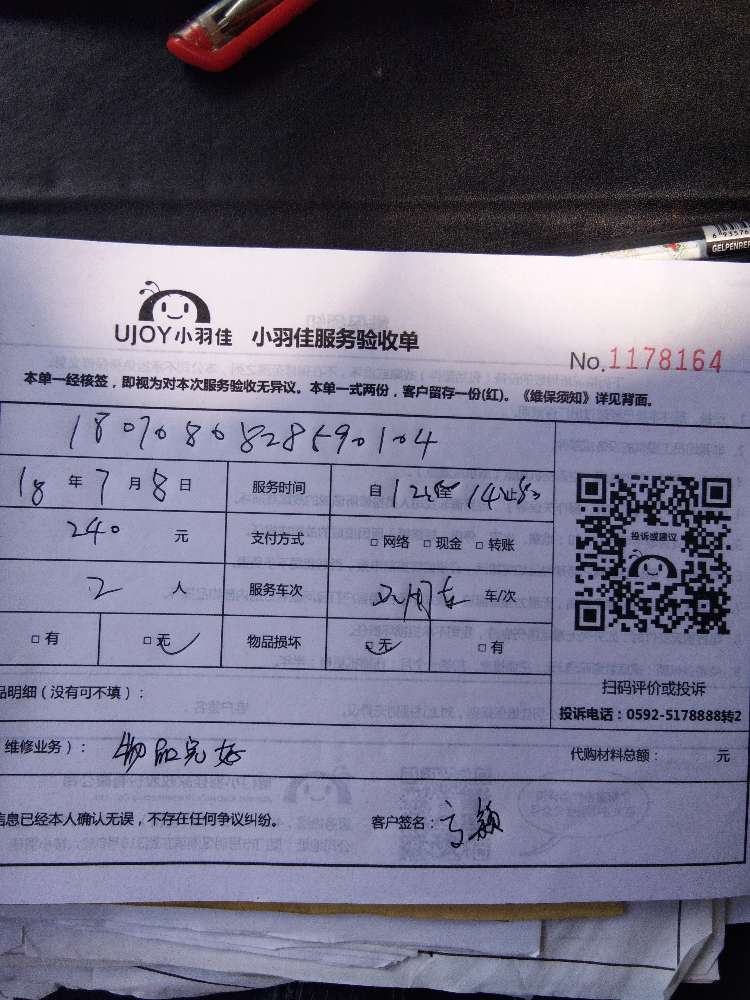 6 93576
GELPENREF
UJOY小羽佳 小羽佳服务验收单
No.1178164
本单一经核签，即视为对本次服务验收无异议。本单一式两份，客户留存一份(红)。《维保须知》详见背面。
1807080828590104
18 年 7 月 8 日 服务时间 自 12 至 14 止
240 元 支付方式 □ 网络 □ 现金 □ 转账
投诉或建议
2 人 服务车次 车/次
□ 有 □ 无 物品损坏 □ 无 □ 有
品明细（没有可不填）：
扫码评价或投诉
投诉电话：0592-5178888转2
维修业务）： 物品完好 代购材料总额： 元
信息已经本人确认无误，不存在任何争议纠纷。 客户签名：